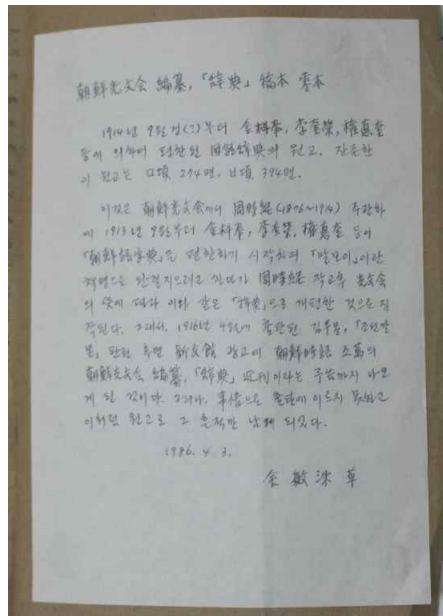 朝鮮光文会 編纂,「辞典」稿本 零本
1914년 9월경(?)부터 金枓奉, 李奎榮, 權悳奎
등에 의하여 편찬된 国語辞典의 원고. 잔존한
이 원고는 ㅁ項 294면, ㅂ項 394면.
이것은 朝鮮光文会에서 周時經(1876~1914) 주관하
에 1913년 9월부터 金枓奉, 李奎榮, 權悳奎 등이
「朝鮮語字典」을 편찬하기 시작하여 「말모이」이란
책명으로 완결지으려고 하다가 周時經 작고후 光文会
의 뜻에 따라 이와 같은 「辞典」으로 개편한 것으로 짐
작된다. 그래서, 1916년 4월에 출판된 김두봉,「조선말
본」판권 후면 新文館 광고에 朝鮮時語 三萬의
朝鮮光文会 編纂,「辞典」近刊이라는 주밝까지 나오
게 된 것이다. 그러나, 事情으로 출판에 이르지 못하고
이처럼 원고로 그 흔적만 남게 되었다.
1986. 4. 3.
金敏洙 草